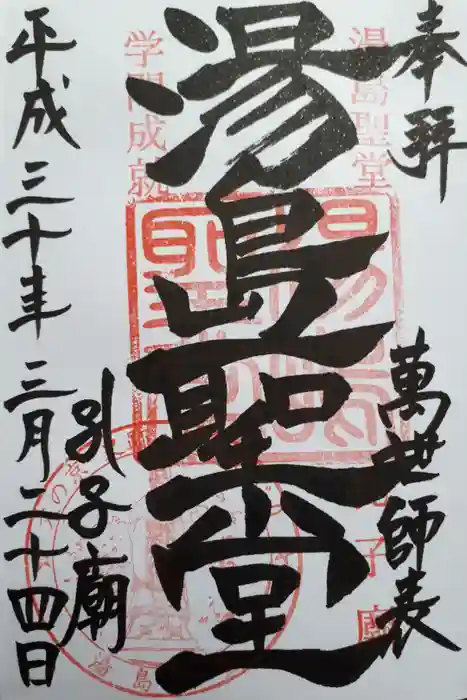 奉拜
萬世師表
湯島聖堂
湯島聖堂
学問成就
孔子廟
平成三十年三月二十四日
湯島